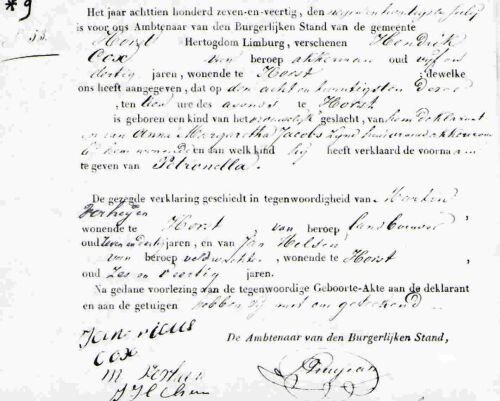 *9
Het jaar achttien honderd zeven-en-veertig, den negenentwintigste July
is voor ons Ambtenaar van den Burgerlijken Stand van de gemeente
Horst Hertogdom Limburg, verschenen Hendrik
Cox van beroep akkerman oud vijf en
dertig jaren, wonende te Horst ; dewelke
ons heeft aangegeven, dat op den acht en twintigsten dezer
, ten tien ure des avonds te Horst
is geboren een kind van het vrouwelijk geslacht, van hem deklarant
en van Anna Margaretha Jacobs zijne huisvrouw akkervrouw
bij hem wonende en dan welk kind hij heeft verklaard de voorna
te geven van Petronella.
De gezegde verklaring geschiedt in tegenwoordigheid van Marten
Verheijen
wonende te Horst , van beroep landbouwer
oud zeven en dertig jaren, en van Jan
van beroep veldwachter , wonende te Horst ,
oud zes en veertig jaren.
Na gedane voorlezing van de tegenwoordige Geboorte-Akte aan de deklarant
en aan de getuigen hebben zij met ons geteekend
De Ambtenaar van den Burgerlijken Stand,
Cox